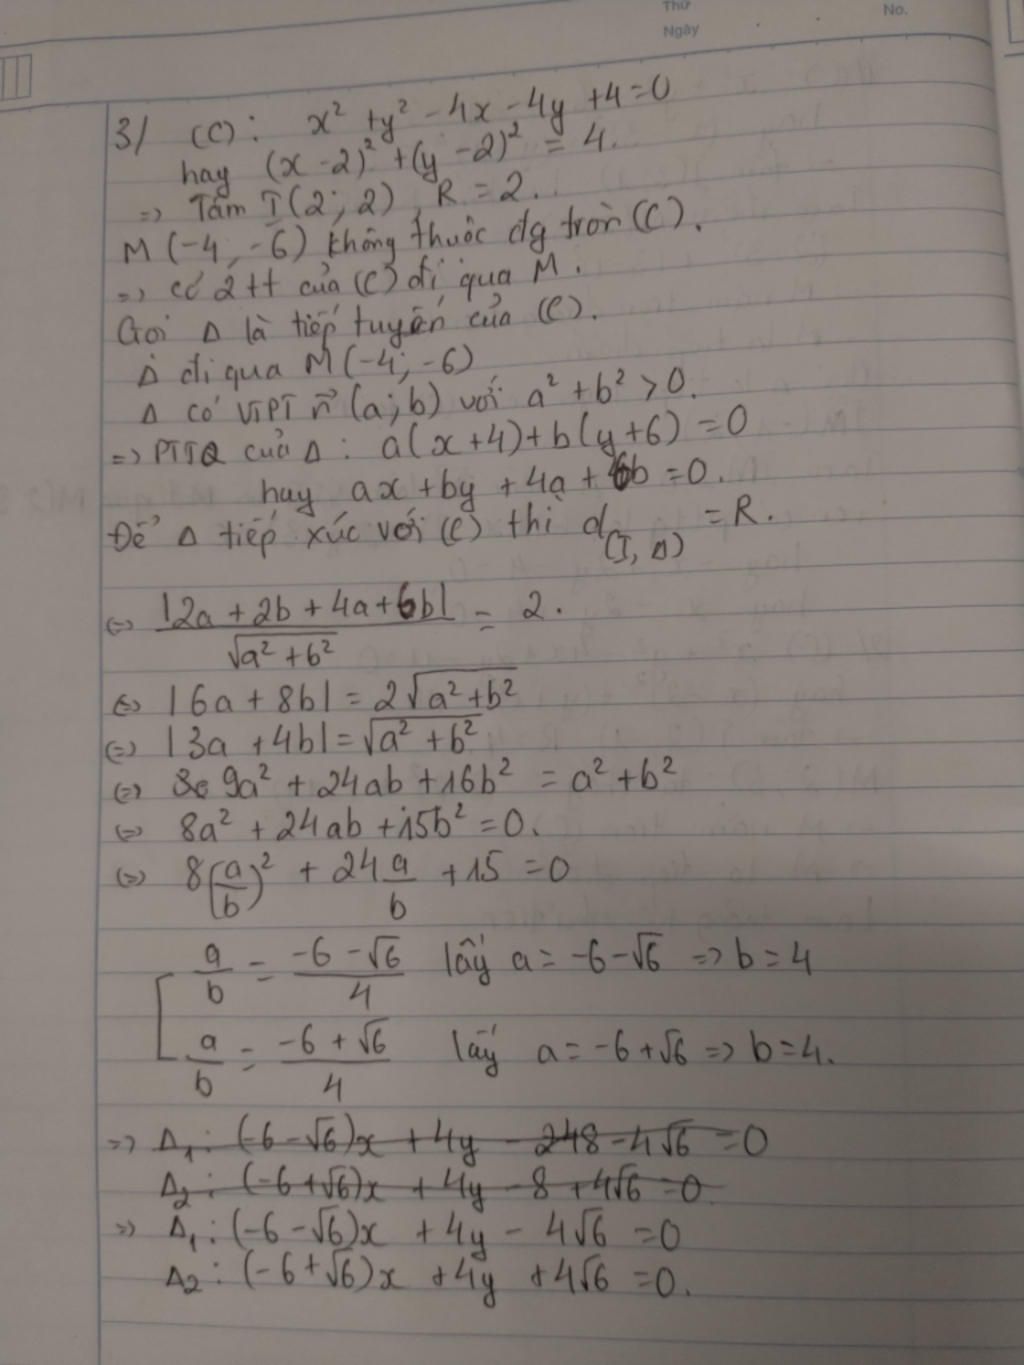 Thứ
No.
Ngày
3/ (C): x² + y² - 4x - 4y + 4 = 0
hay (x - 2)² + (y - 2)² = 4.
=> Tâm I(2; 2), R = 2.
M(-4; -6) không thuộc đg tròn (C).
=> có 2 tt của (C) đi qua M.
Gọi Δ là tiếp tuyến của (C).
Δ đi qua M(-4; -6)
Δ có VTPT n⃗(a; b) với a² + b² > 0.
=> PTTQ của Δ: a(x+4) + b(y+6) = 0
hay ax + by + 4a + 6b = 0.
Để Δ tiếp xúc với (C) thì d(I, Δ) = R.
<=> |2a + 2b + 4a + 6b| / √(a² + b²) = 2.
<=> |6a + 8b| = 2√(a² + b²)
<=> |3a + 4b| = √(a² + b²)
<=> 9a² + 24ab + 16b² = a² + b²
<=> 8a² + 24ab + 15b² = 0.
<=> 8(a/b)² + 24 a/b + 15 = 0
[ a/b = (-6 - √6)/4 lấy a = -6 - √6 => b = 4
a/b = (-6 + √6)/4 lấy a = -6 + √6 => b = 4.
=> Δ₁: (-6 - √6)x + 4y - 248 - 4√6 = 0
Δ₂: (-6 + √6)x + 4y - 8 + 4√6 = 0.
=> Δ₁: (-6 - √6)x + 4y - 4√6 = 0
Δ₂: (-6 + √6)x + 4y + 4√6 = 0.